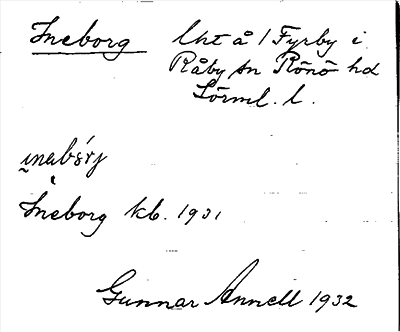 Ineborg lht å 1 Fyrby i
Råby sn Rönö hd
Sörml. l.
Ineborg kb. 1931
Gunnar Annell 1932